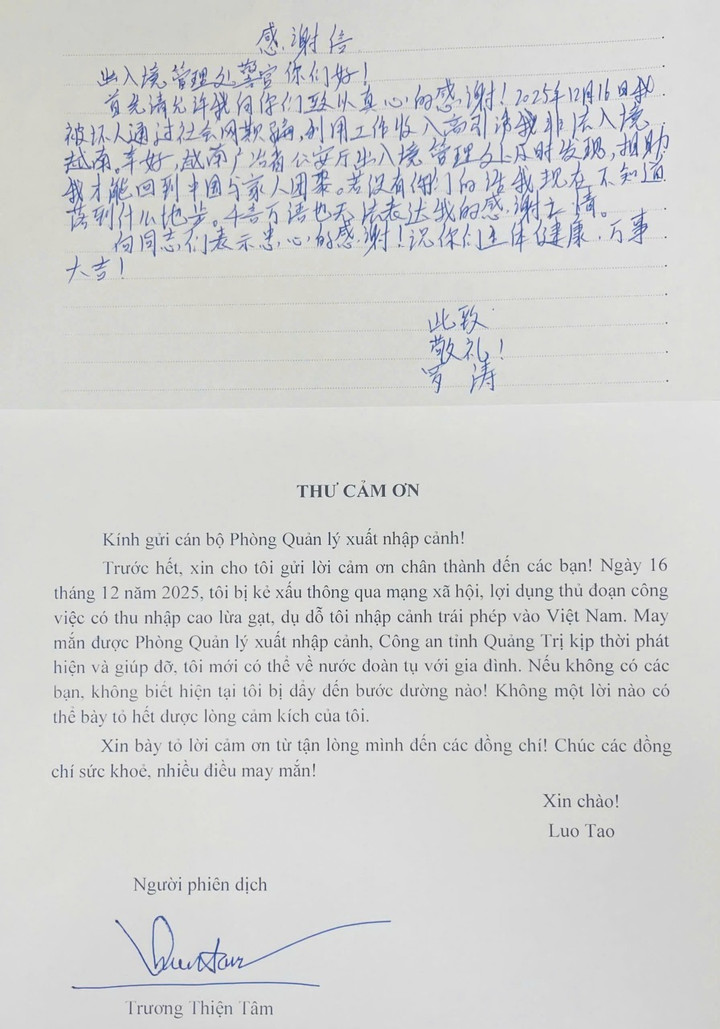 感谢信
出入境管理处警官你们好！
首先请允许我向你们致以真心的感谢！2025年12月16日我
被坏人通过社会网欺骗，利用工作收入高引诱我非法入境
越南。幸好，越南广治省公安厅出入境管理处及时发现，相助
我才能回到中国与家人团聚。若没有你们的话我现在不知道
落到什么地步。千言万语也无法表达我的感谢之情。
向同志们表示忠心的感谢！祝你们主体健康，万事
大吉！
此致
敬礼！
罗涛
THƯ CẢM ƠN
Kính gửi cán bộ Phòng Quản lý xuất nhập cảnh!
Trước hết, xin cho tôi gửi lời cảm ơn chân thành đến các bạn! Ngày 16
tháng 12 năm 2025, tôi bị kẻ xấu thông qua mạng xã hội, lợi dụng thủ đoạn công
việc có thu nhập cao lừa gạt, dụ dỗ tôi nhập cảnh trái phép vào Việt Nam. May
mắn được Phòng Quản lý xuất nhập cảnh, Công an tỉnh Quảng Trị kịp thời phát
hiện và giúp đỡ, tôi mới có thể về nước đoàn tụ với gia đình. Nếu không có các
bạn, không biết hiện tại tôi bị đẩy đến bước đường nào! Không một lời nào có
thể bày tỏ hết được lòng cảm kích của tôi.
Xin bày tỏ lời cảm ơn từ tận lòng mình đến các đồng chí! Chúc các đồng
chí sức khoẻ, nhiều điều may mắn!
Xin chào!
Luo Tao
Người phiên dịch
Trương Thiện Tâm